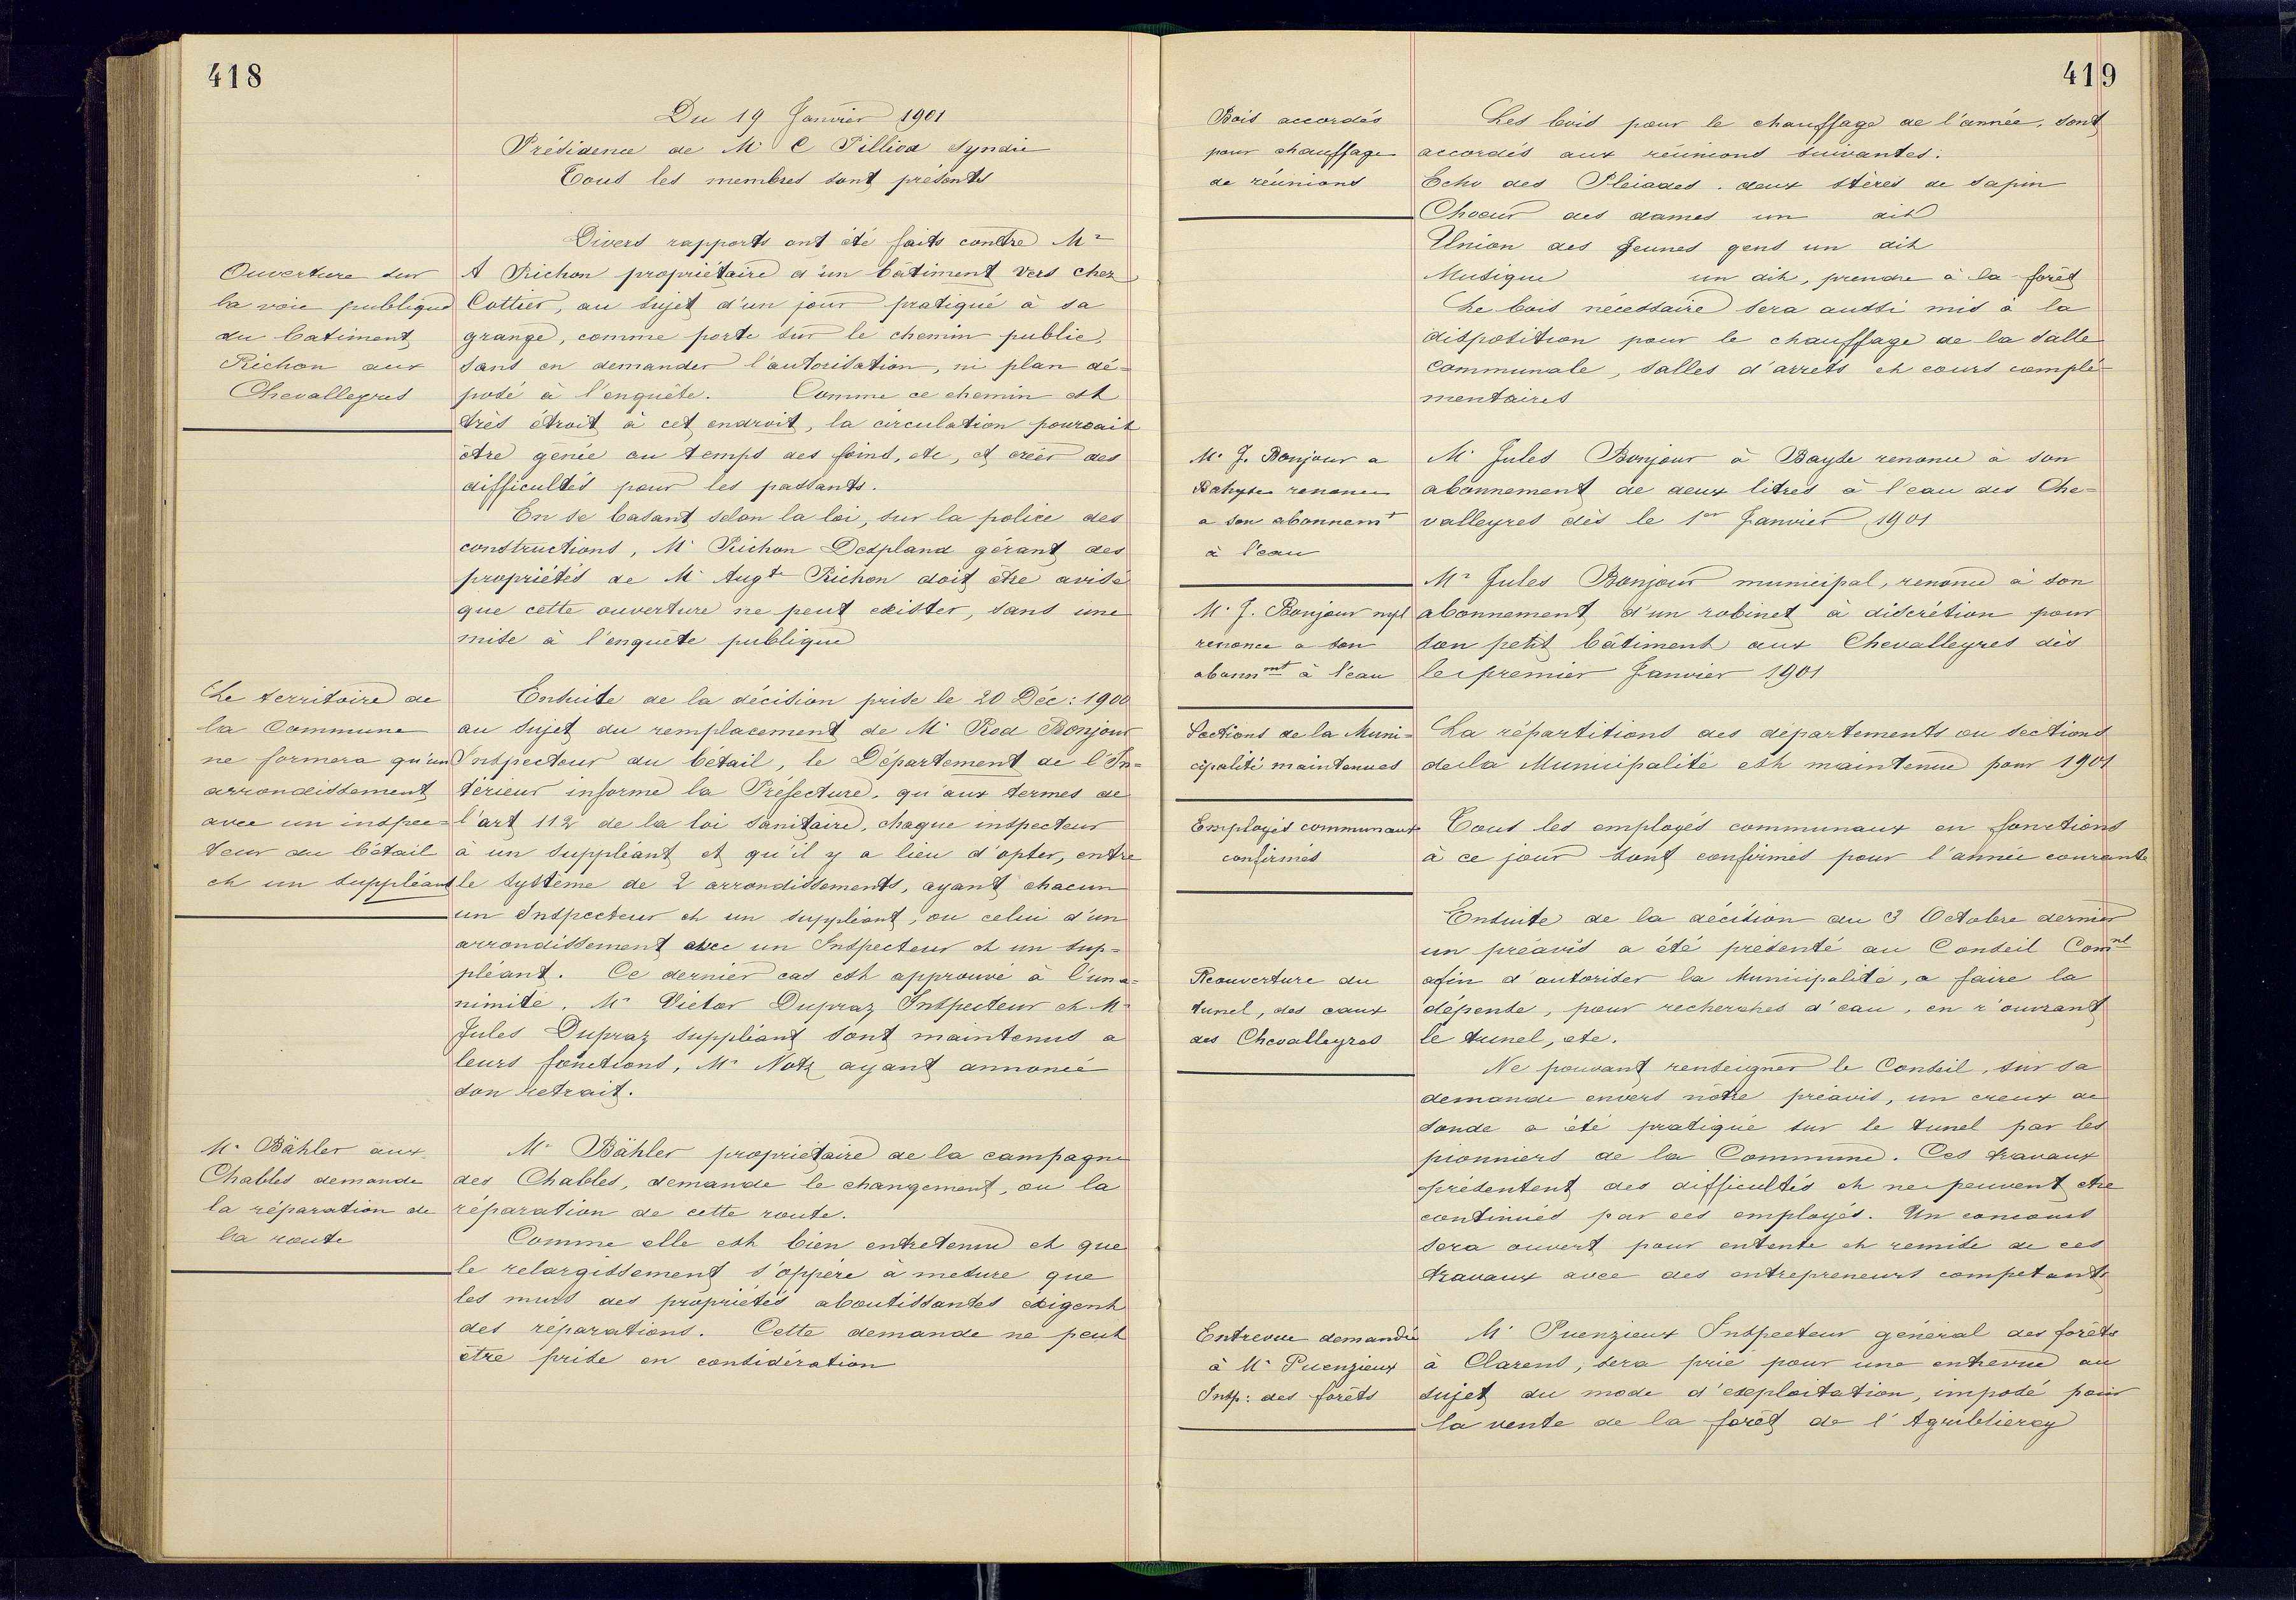 418
Du 19 Janvier 1901
Présidence de Mr C Pilliod Syndic
Tous les membres sont présents
Ouverture sur
la voie publique
du batiment
Richon aux
Chevalleyres
Divers rapports ont été faits contre Mr
A Richon propriétaire d'un bâtiment vers chez
Cottier, au sujet d'un jour pratiqué à sa
grange, comme porte sur le chemin public,
sans en demander l'autorisation, ni plan dé=
posé à l'enquête. Comme ce chemin est
très étroit à cet endroit, la circulation pourrait
être gênée au temps des foins, etc, et créer des
difficultés pour les passants.
En se basant selon la loi, sur la police des
constructions, Mr Richon Despland gérant des
propriétés de Mr Augte Richon doit être avisé
que cette ouverture ne peut exister, sans une
mise à l'enquête publique
Le territoire de
la Commune
ne formera qu'un
arrondissement
avec un inspec=
teur du bétail
et un suppléant
Ensuite de la décision prise le 20 Déc: 1900
au sujet du remplacement de Mr Rod Bonjour
Inspecteur du bétail, le Département de l'In=
térieur informe la Préfecture, qu'aux termes de
l'art 112 de la loi sanitaire, chaque inspecteur
à un suppléant et qu'il y a lieu d'opter, entre
le système de 2 arrondissements, ayant chacun
un Inspecteur et un suppléant, ou celui d'un
arrondissement avec un Inspecteur et un sup=
pléant. Ce dernier cas est approuvé à l'una=
nimité. Mr Victor Dupraz Inspecteur et Mr
Jules Dupraz suppléant sont maintenus a
leurs fonctions, Mr Notz ayant annoncé
son retrait.
Mr Bähler aux
Chables demande
la réparation de
la route
Mr Bähler propriétaire de la campagne
des Chables, demande le changement, ou la
réparation de cette route.
Comme elle est bien entretenue et que
le relargissement s'oppère à mesure que
les murs des propriétés aboutissantes exigent
des réparations. Cette demande ne peut
être prise en considération
419
Bois accordés
pour chauffage
de réunions
Les bois pour le chauffage de l'année, sont
accordés aux réunions suivantes:
Echo des Pleiades. deux stères de sapin
Choeur des dames un dit
Union des Jeunes gens un dit
Musique un dit, prendre à la forêt
Le bois nécessaire sera aussi mis à la
disposition pour le chauffage de la salle
communale, salles d'arrets et cours complé=
mentaires
Mr J. Bonjour a
Bahyse renonce
a son abonnemt
à l'eau
Mr Jules Bonjour à Bayse renonce à son
abonnement de deux litres à l'eau des Che=
valleyres dès le 1er Janvier 1901
Mr J. Bonjour mpl
renonce a son
abonnmt à l'eau
Mr Jules Bonjour municipal, renonce à son
abonnement d'un robinet à discrétion pour
son petit bâtiment aux Chevalleyres dès
le premier Janvier 1901
Sections de la Muni=
cipalité maintenues
La répartitions des départements ou sections
de la Municipalité est maintenue pour 1901
Employés communaux
confirmés
Tous les employés communaux en fonctions
à ce jour sont confirmés pour l'année courante
Reouverture du
tunel, des eaux
des Chevalleyres
Ensuite de la décision du 3 Octobre dernier
un préavis a été présenté au Conseil Comnl
afin d'autoriser la Municipalité, a faire la
dépense, pour recherches d'eau, en r'ouvrant
le tunel, etc.
Ne pouvant renseigner le Conseil, sur sa
demande envers nôtre préavis, un creux de
sonde a été pratiqué sur le tunel par les
pionniers de la Commune. Ces travaux
présentent des difficultés et ne peuvent etre
continués par ces employés. Un concours
sera ouvert pour entente et remise de ces
travaux avec des entrepreneurs competants
Entrevue demandée
à Mr Puenzieux
Insp: des forêts
Mr Puenzieux Inspecteur général des forêts
à Clarens, sera prié pour une entrevue au
sujet du mode d'exploitation, imposé pour
la vente de la forêt de l'